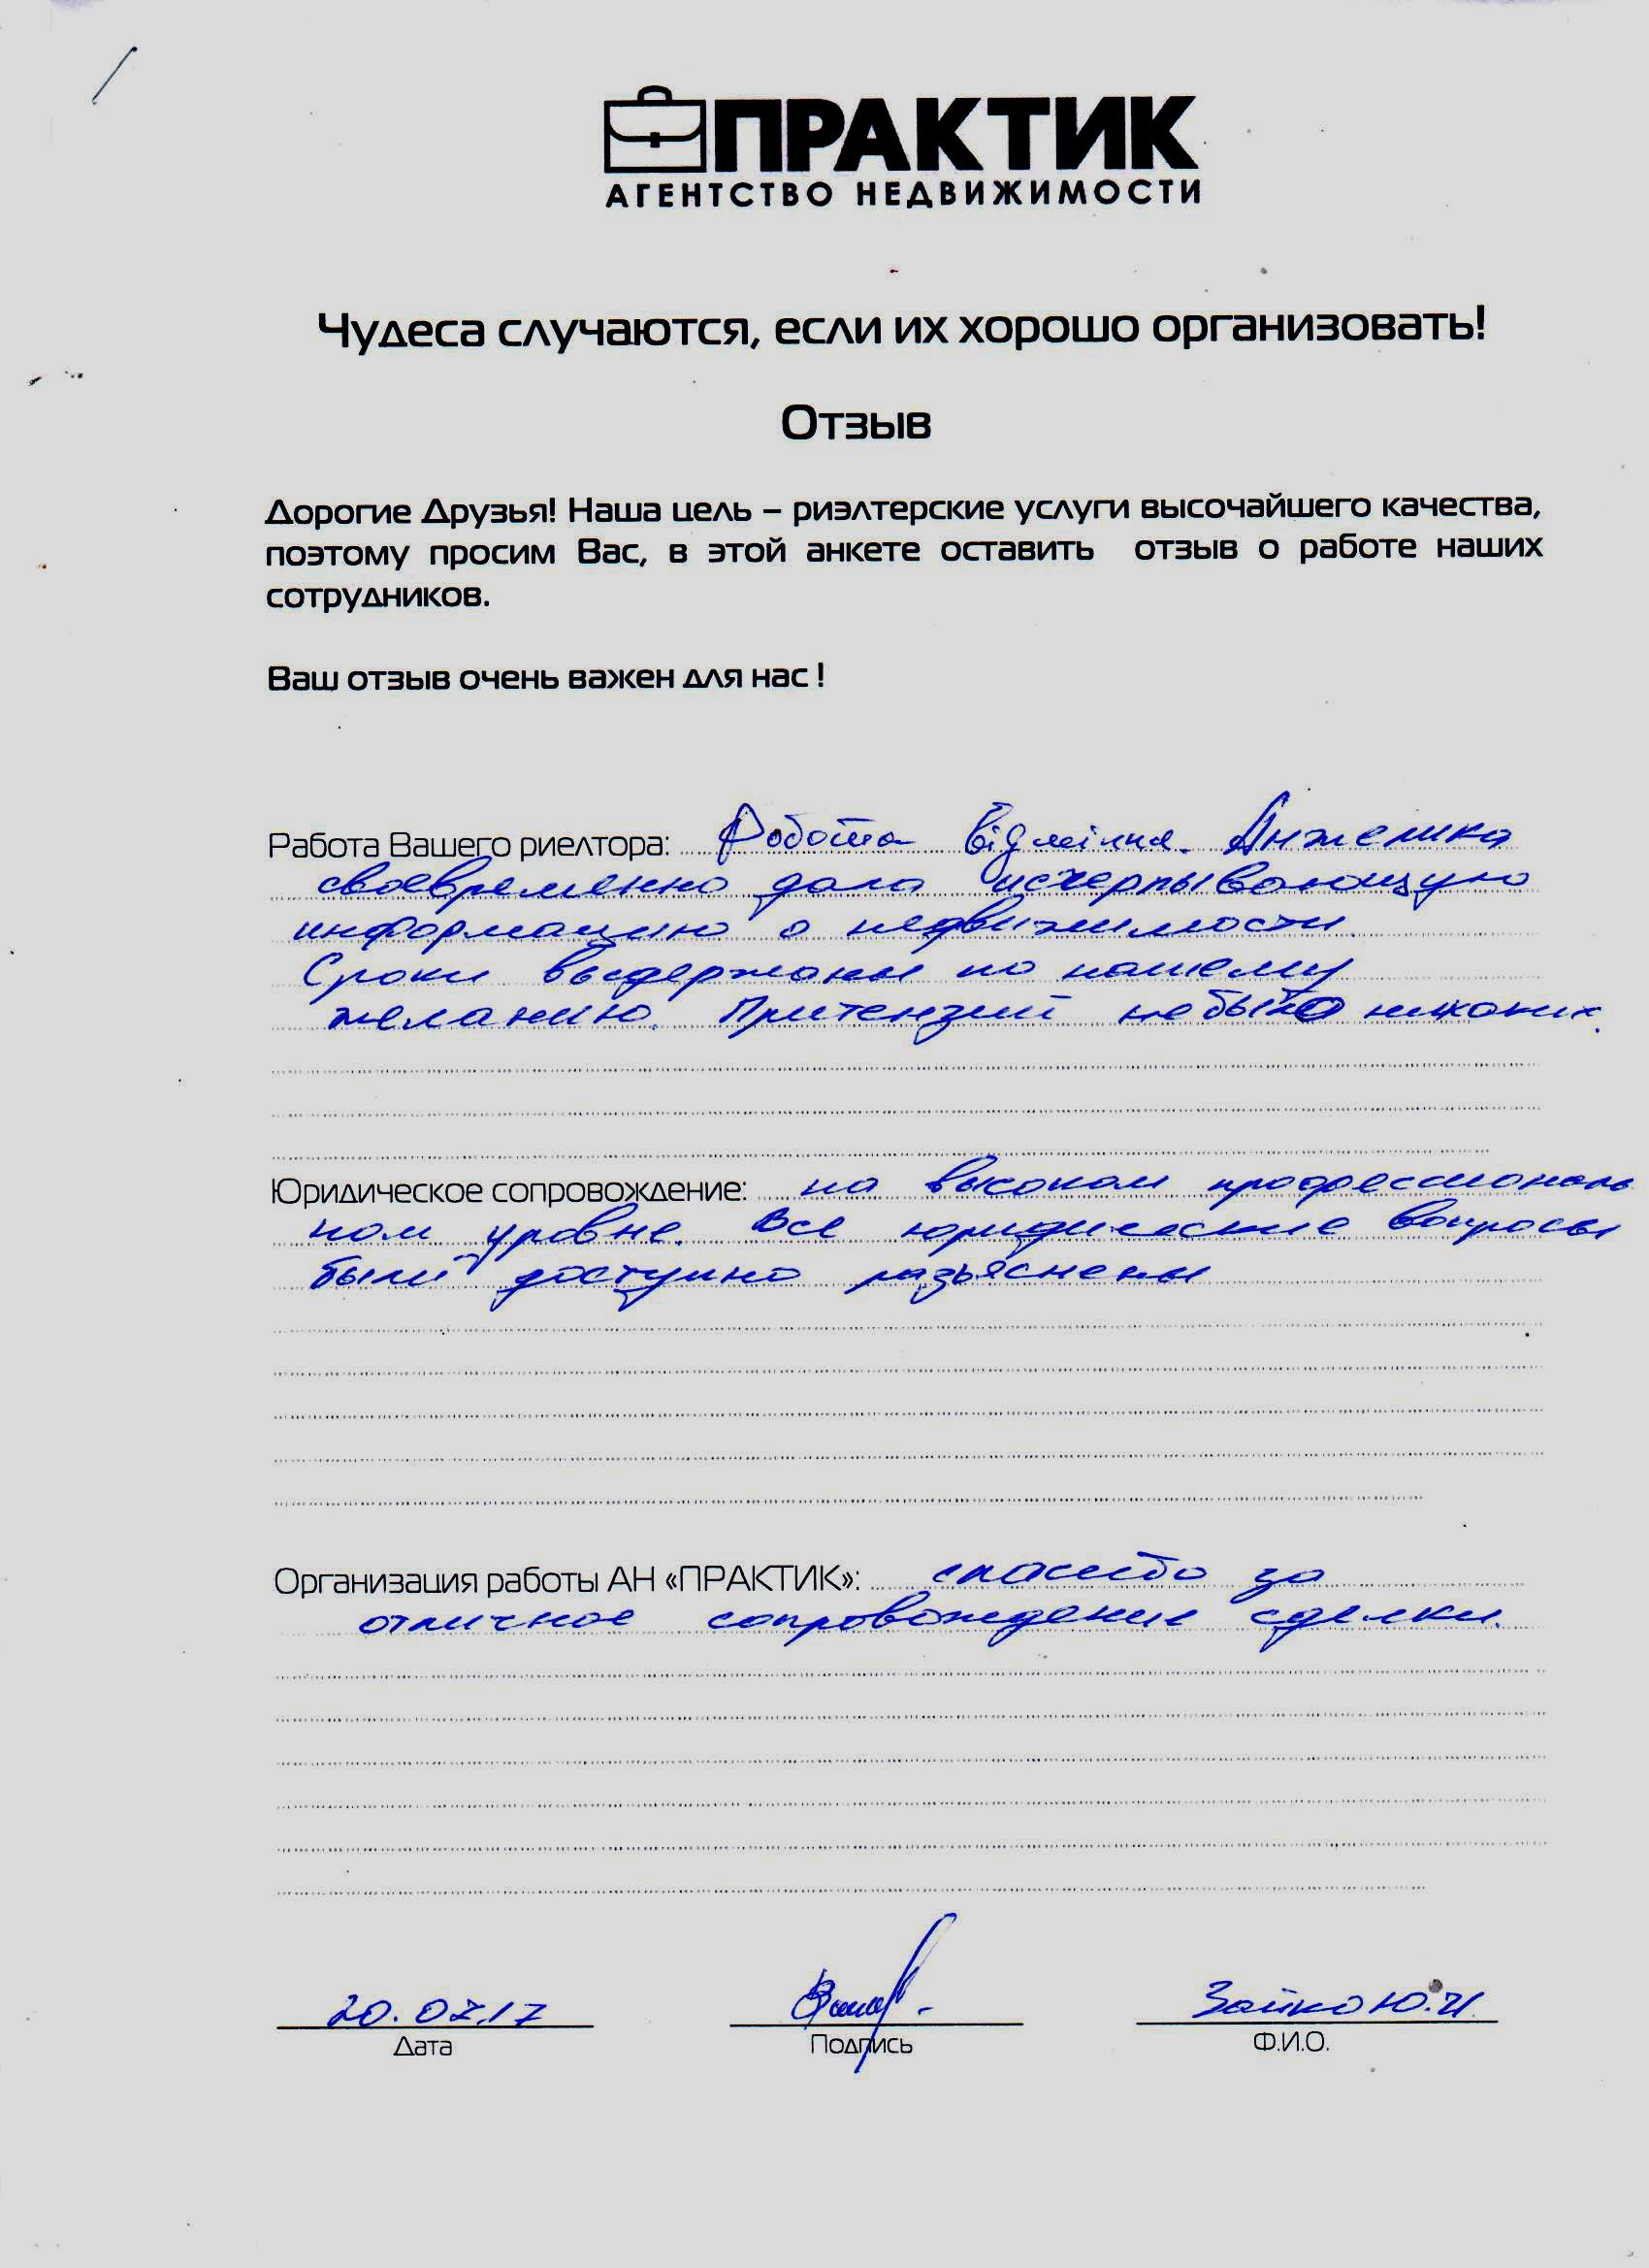 ПРАКТИК
АГЕНТСТВО НЕДВИЖИМОСТИ
Чудеса случаются, если их хорошо организовать!
Отзыв
Дорогие Друзья! Наша цель – риэлтерские услуги высочайшего качества,
поэтому просим Вас, в этой анкете оставить отзыв о работе наших
сотрудников.
Ваш отзыв очень важен для нас !
Работа Вашего риелтора: Робота відмінна. Анжелика
своевременно дала исчерпывающую
информацию о недвижимости.
Сроки выдержаны по нашему
желанию. Притензий не было никаких.
Юридическое сопровождение: на высоком профессиональ
ном уровне. Все юридические вопросы
были доступно разьяснены
Организация работы АН «ПРАКТИК»: спасибо за
отличное сопровождение сделки.
20.07.17 Зайко Ю.И.
Дата Подпись Ф.И.О.